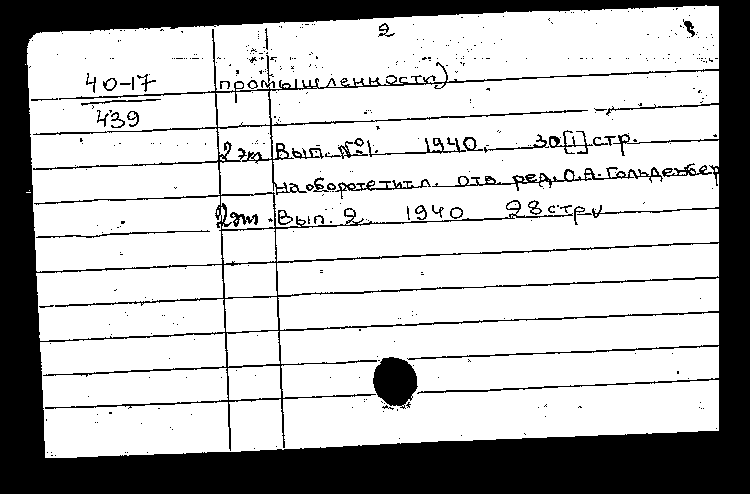 2
40-17 промышленности).
439
2 эт Вып. №1. 1940, 30[1] стр.
на обороте тит л. Отв. ред. О.А. Гольденбер
2 эт. Вып. 2. 1940 28 стр